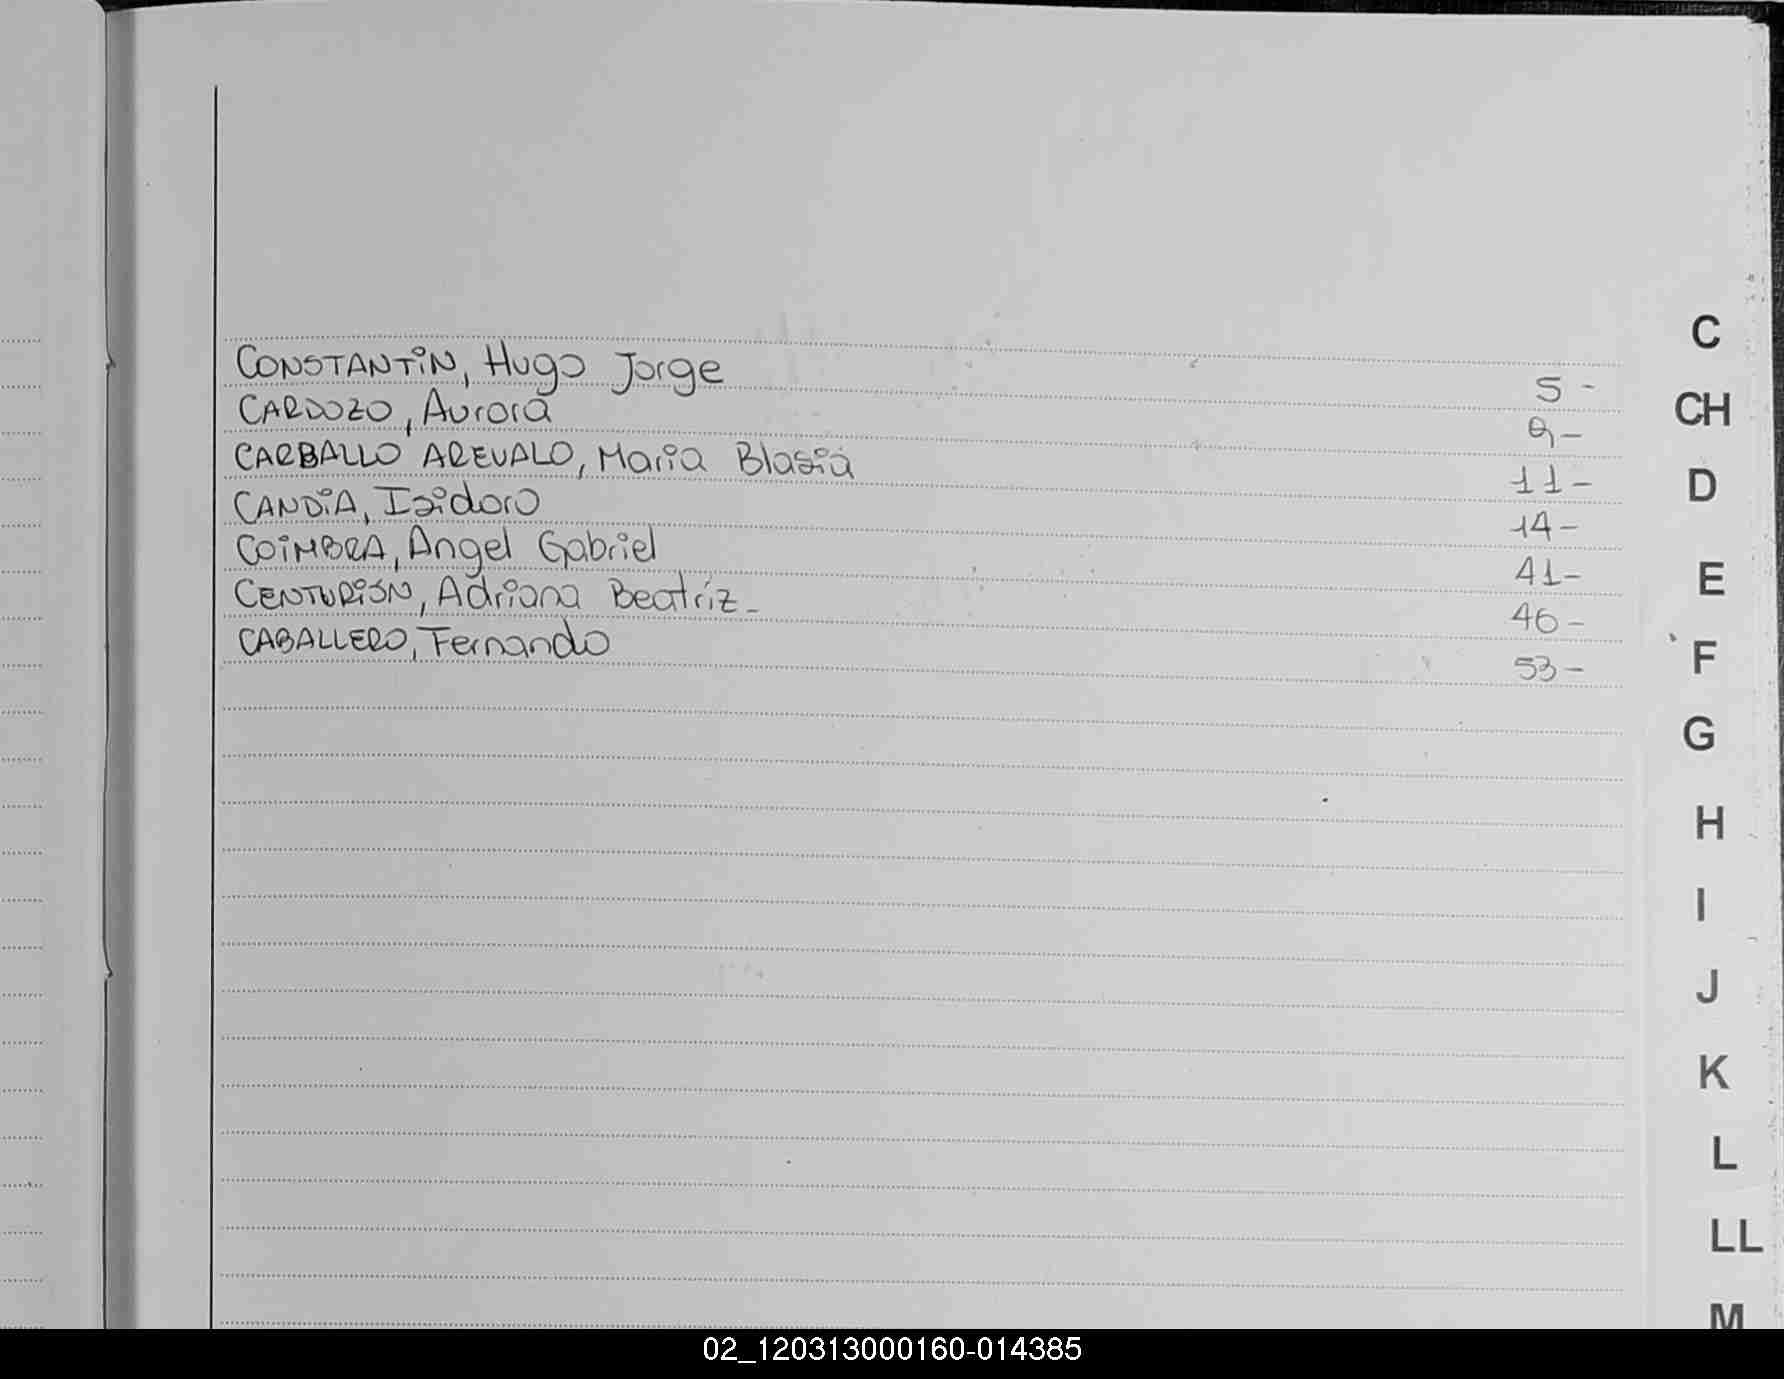 CONSTANTiN, Hugo Jorge 5 -
CARDOZO, Aurora 9 -
CARBALLO AREVALO, Maria Blasia 11 -
CANDiA, Isidoro 14 -
COiMBRA, Angel Gabriel 41 -
CENTURiÓN, Adriana Beatriz - 46 -
CABALLERO, Fernando 53 -
C
CH
D
E
F
G
H
I
J
K
L
LL
M
02_120313000160-014385